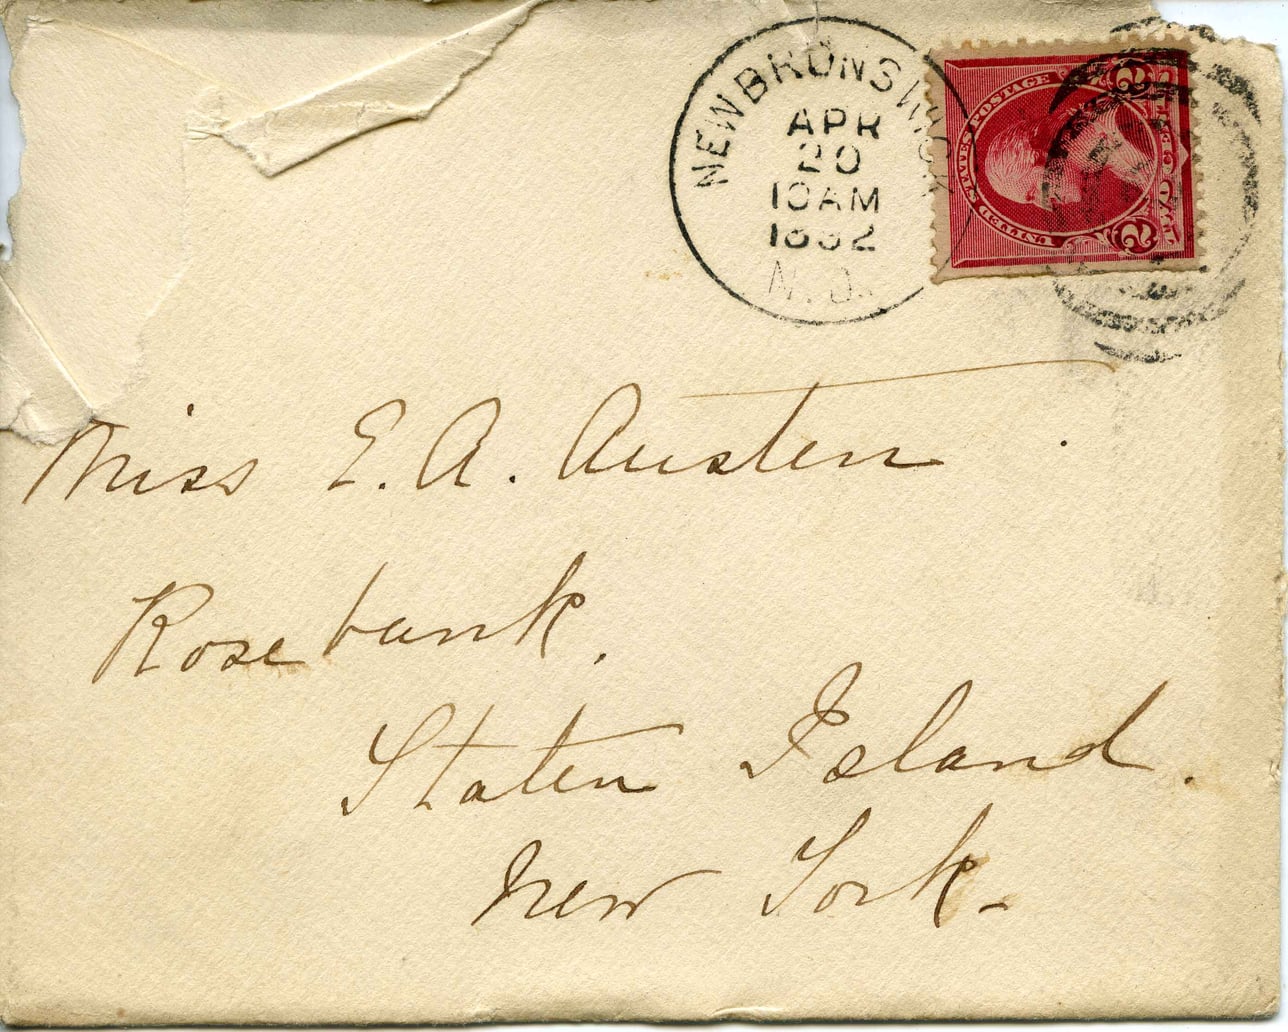 NEW BRUNSWICK
APR
20
10 AM
1892
N.J.
UNITED STATES POSTAGE
2 TWO CENTS 2
Miss E. A. Austen
Rosebank.
Staten Island.
New York.